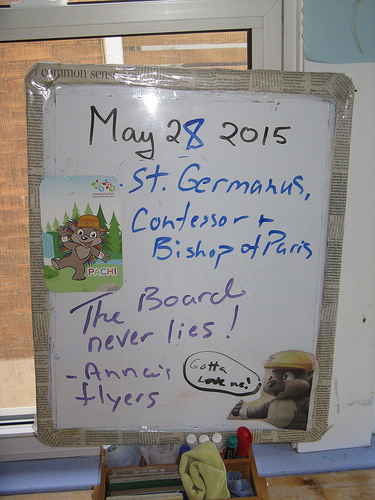 common sense
May 28 2015
- St. Germanus,
Confessor +
Bishop of Paris
PACHI
The Board
never lies!
- Anna's
flyers
Gotta
Love me!